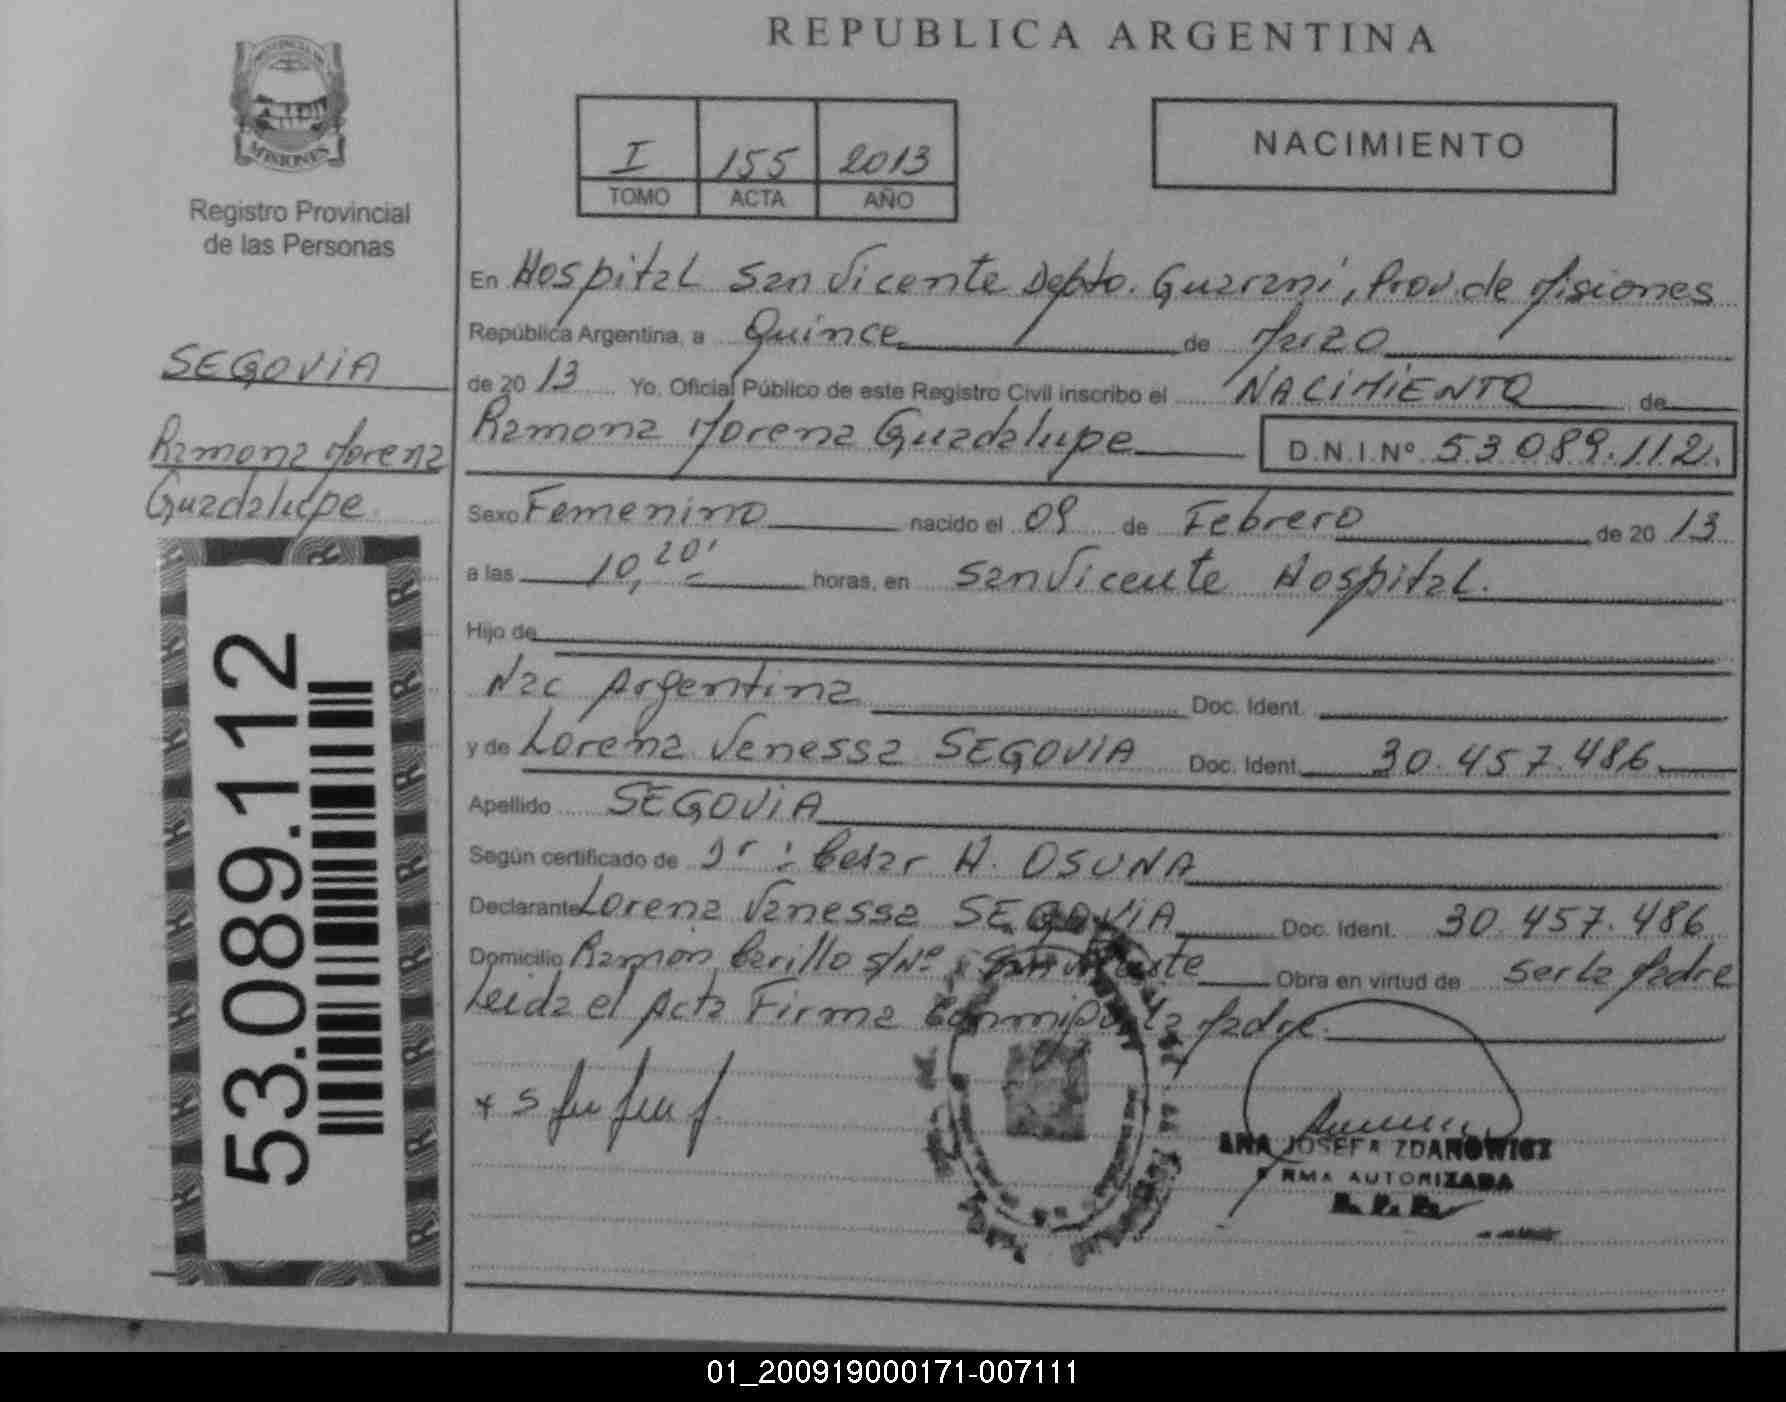 REPUBLICA ARGENTINA
PROVINCIA DE
MISIONES
Registro Provincial
de las Personas
I 155 2013
TOMO ACTA AÑO
NACIMIENTO
SEGOVIA
Ramona Morena
Guadalupe
53.089.112
En Hospital San Vicente Depto. Guaraní, Prov. de Misiones
República Argentina, a Quince de Marzo
de 20 13 Yo. Oficial Público de este Registro Civil inscribo el NACIMIENTO de
Ramona Morena Guadalupe D.N.I.Nº 53.089.112.
Sexo Femenino nacido el 09 de Febrero de 20 13
a las 10,20' horas, en San Vicente Hospital.
Hijo de
Nac Argentina Doc. Ident.
y de Lorena Venessa SEGOVIA Doc. Ident. 30.457.486
Apellido SEGOVIA
Según certificado de Dr: Cesar H. OSUNA
Declarante Lorena Vanessa SEGOVIA Doc. Ident. 30.457.486
Domicilio Ramón Carillo s/Nº San Vicente Obra en virtud de ser la Madre
Leida el Acta Firma Conmigo la Madre.
ANA JOSEFA ZDANOWICZ
FIRMA AUTORIZADA
01_200919000171-007111